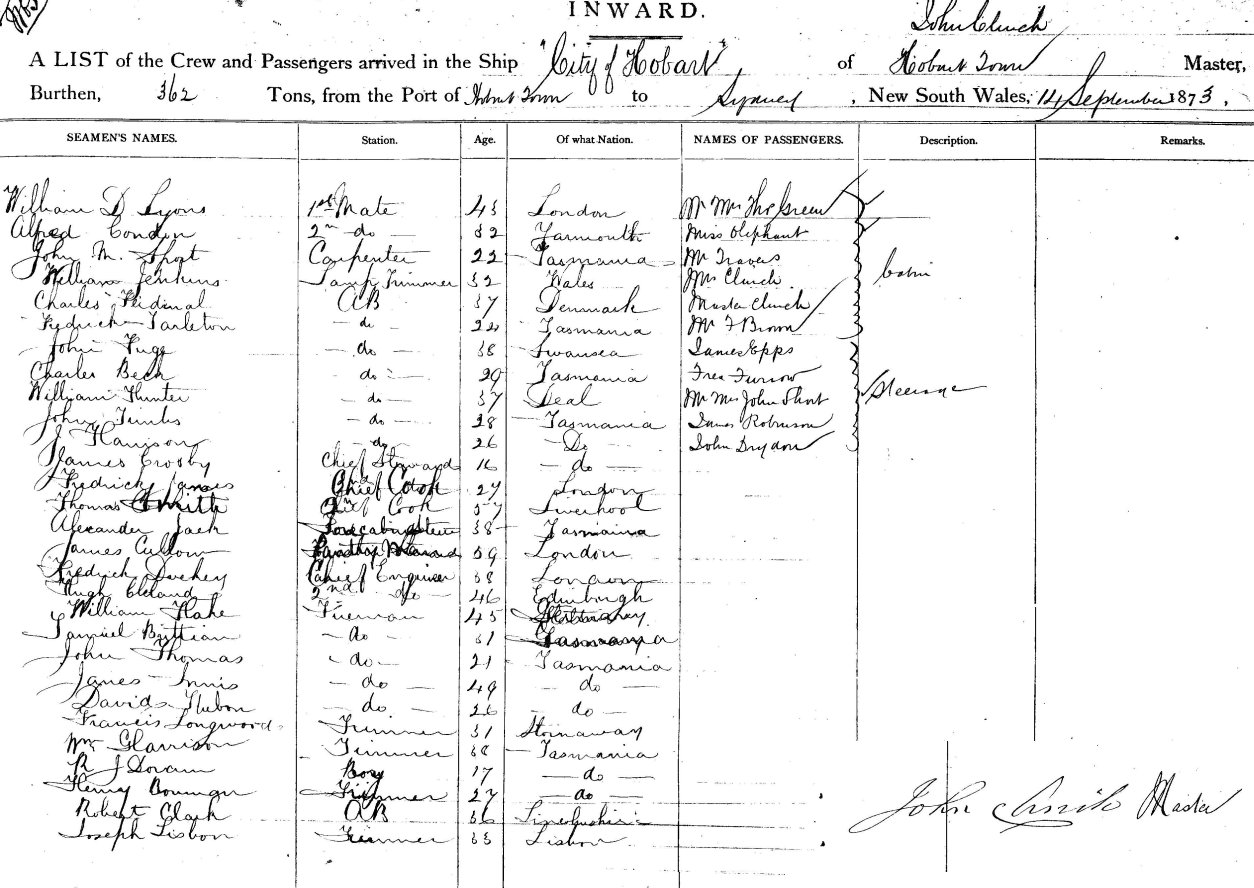 INWARD.
John Clinch
A LIST of the Crew and Passengers arrived in the Ship "City of Hobart" of Hobart Town Master,
Burthen, 362 Tons, from the Port of Hobart Town to Sydney, New South Wales, 14 September 1873.
SEAMEN'S NAMES. Station. Age. Of what Nation. NAMES OF PASSENGERS. Description. Remarks.
William D Lyons 1st Mate 43 London Mr Mrs Thos Green
Alfred Condon 2nd do 32 Yarmouth Miss Oliphant
John M. Short Carpenter 22 Tasmania Mr Travers
William Jenkins Lamp Trimmer 32 Wales Mrs Clinch Cabin
Charles AB 37 Denmark Master Clinch
Fedrick Tarleton do 24 Tasmania Mr F Brown
John Fuge do 38 Swansea James Epps
Charles Beck do 29 Tasmania Fred Furrow
William Hunter do 37 Deal Mr Mrs John Short Steerage
John Timbs do 28 Tasmania James Robinson
J Harrison do 26 Do John Drydon
James Crosby Chief Steward 16 do
Fedrick James Chief Cook 27 London
Thomas Smith Cook 57 Liverpool
Alexander Jack Forecabin 38 Tasmania
James Cullom 39 London
Fedrick Chief Engineer 38 London
Hugh Cleland 2nd do 46 Edinburgh
William Flake Fireman 45
Samuel Brittian do 31 Tasmania
John Thomas do 21 Tasmania
James Innis do 49 do
David Hubon do 26 do
Francis Longwood Trimmer 31 Stornaway
Wm Harrison Timmer 38 Tasmania
R J Doram Boy 17 do
Henry Bowman Trimmer 27 do
Robert Clark AB 36 Lincolnshire
Joseph Lisbon Trimmer 33 Lisbon
John Clinch Master